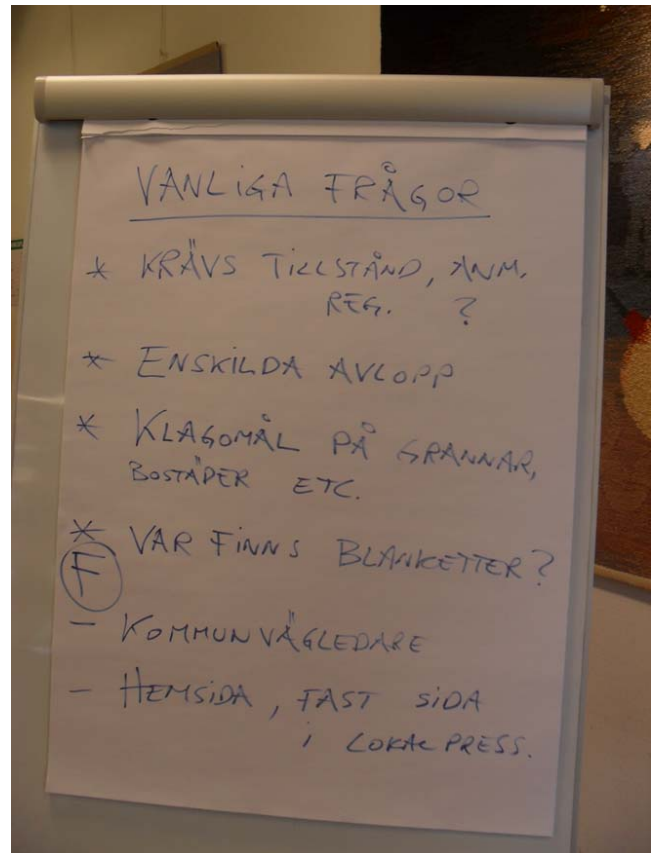 VANLIGA FRÅGOR
* KRÄVS TILLSTÅND, ANM.
REG. ?
* ENSKILDA AVLOPP
* KLAGOMÅL PÅ GRANNAR,
BOSTÄDER ETC.
* VAR FINNS BLANKETTER?
F
- KOMMUNVÄGLEDARE
- HEMSIDA, FAST SIDA
i LOKALPRESS.